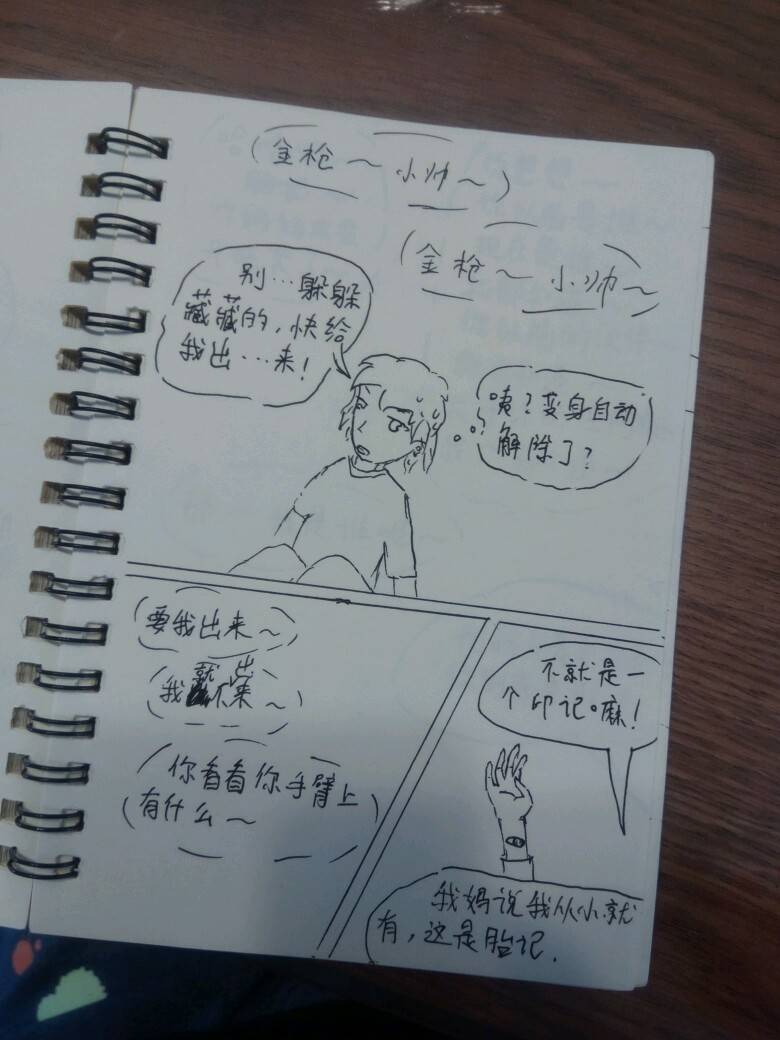 金枪～小帅～
金枪～小帅～
别…躲躲
藏藏的,快给
我出…来!
咦?变身自动
解除了?
要我出来～
就出
我来～
你看看你手臂上
有什么～
不就是一
个印记嘛!
我妈说我从小就
有,这是胎记.